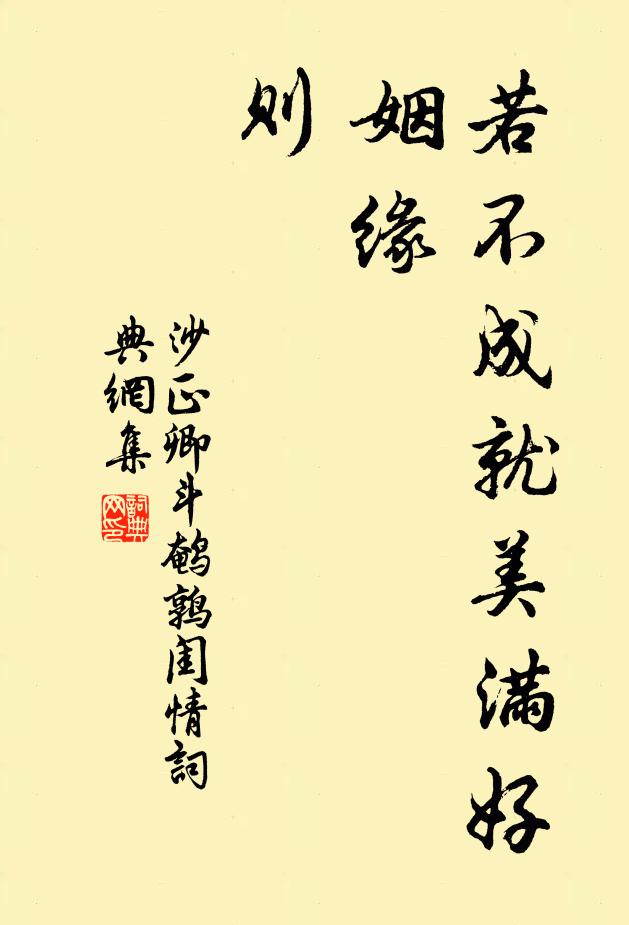 若不成就美滿好
姻缘
则
沙正卿斗鹌鹑闺情詞
典網集
詞典
网印